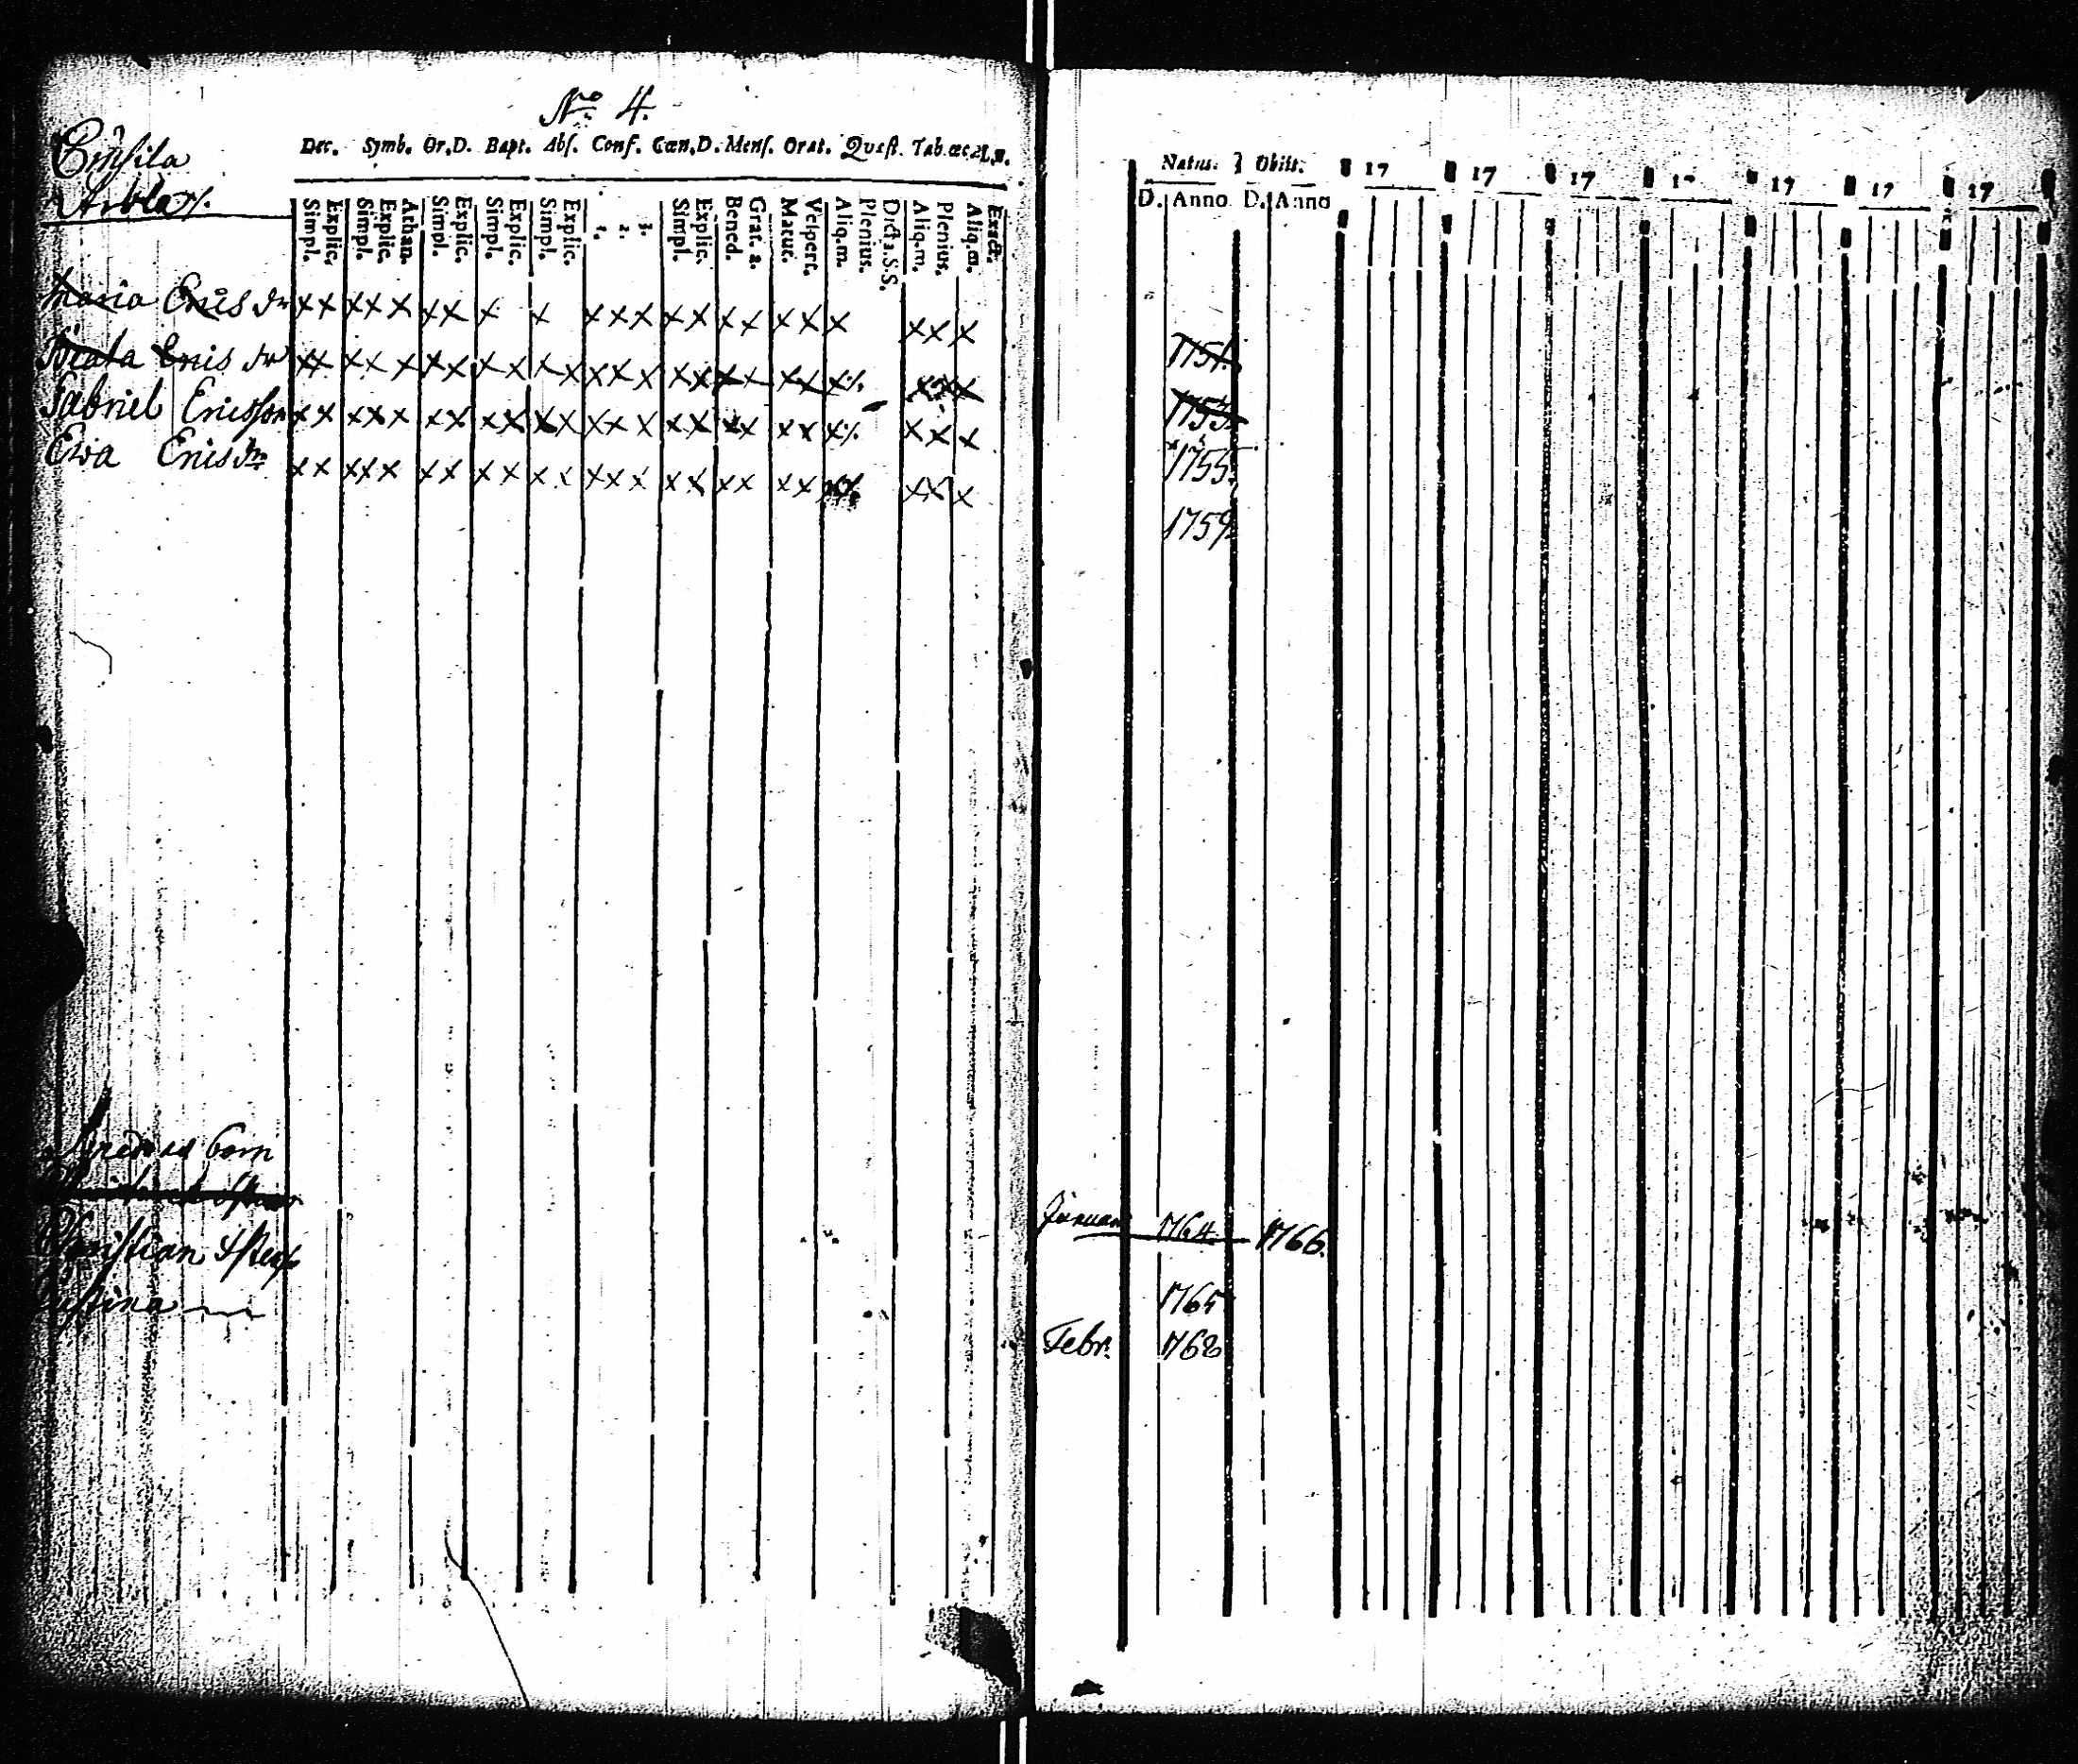 No 4.
Arbla
Dec. Symb. Or.D. Bapt. Abs. Conf. Cœn.D. Mens. Orat. Quæst. Tab. œc.
Simpl. Explic. Simpl. Explic. Athan. Simpl. Explic. Simpl. Explic. Simpl. Explic. 1. 2. 3. Simpl. Explic. Bened. Grat. 2. Matut. Vespert. Aliq.m. Plenius. Dict a.S.S. Aliq.m. Plenius. Aliq.m. Exact.
Maria Erics dr x x x x x x x x x x x x x x x x x x x x x x
Beata Erics dr x x x x x x x x x x x x x x x x x x x x x x x x
Gabriel Ericsson x x x x x x x x x x x x x x x x x x x x x x x x
Ewa Erics dr x x x x x x x x x x x x x x x x x x x x x x x x
Andreas barn
Christian
Natus. Obiit. 17 17 17 17 17 17 17
D. Anno D. Anno
1751.
1753
1755.
1759
Januari 1764. 1766.
1765
Febr. 1768